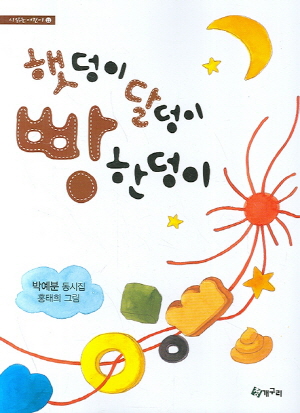 햇덩이
달덩이
빵
한덩이
박예분 동시집
홍태희 그림
청개구리